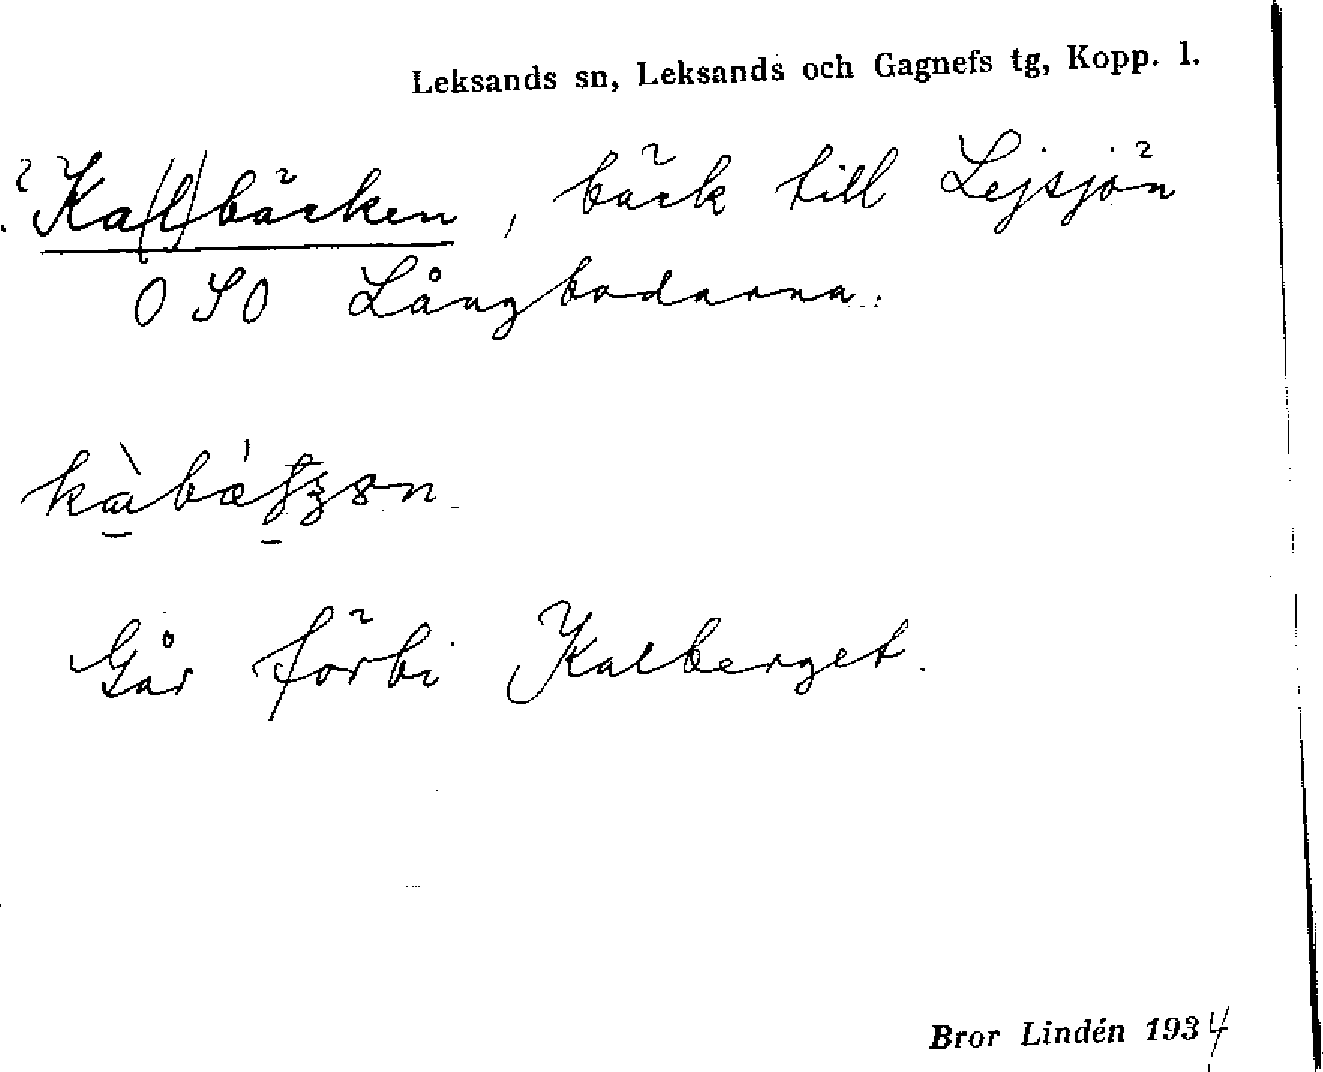 Leksands sn, Leksands och Gagnefs tg, Kopp. l.
? Ka(l)bäcken, bäck till Lejsjön
OSO Långbodarna.
Går förbi Kalberget.
Bror Lindén 1934